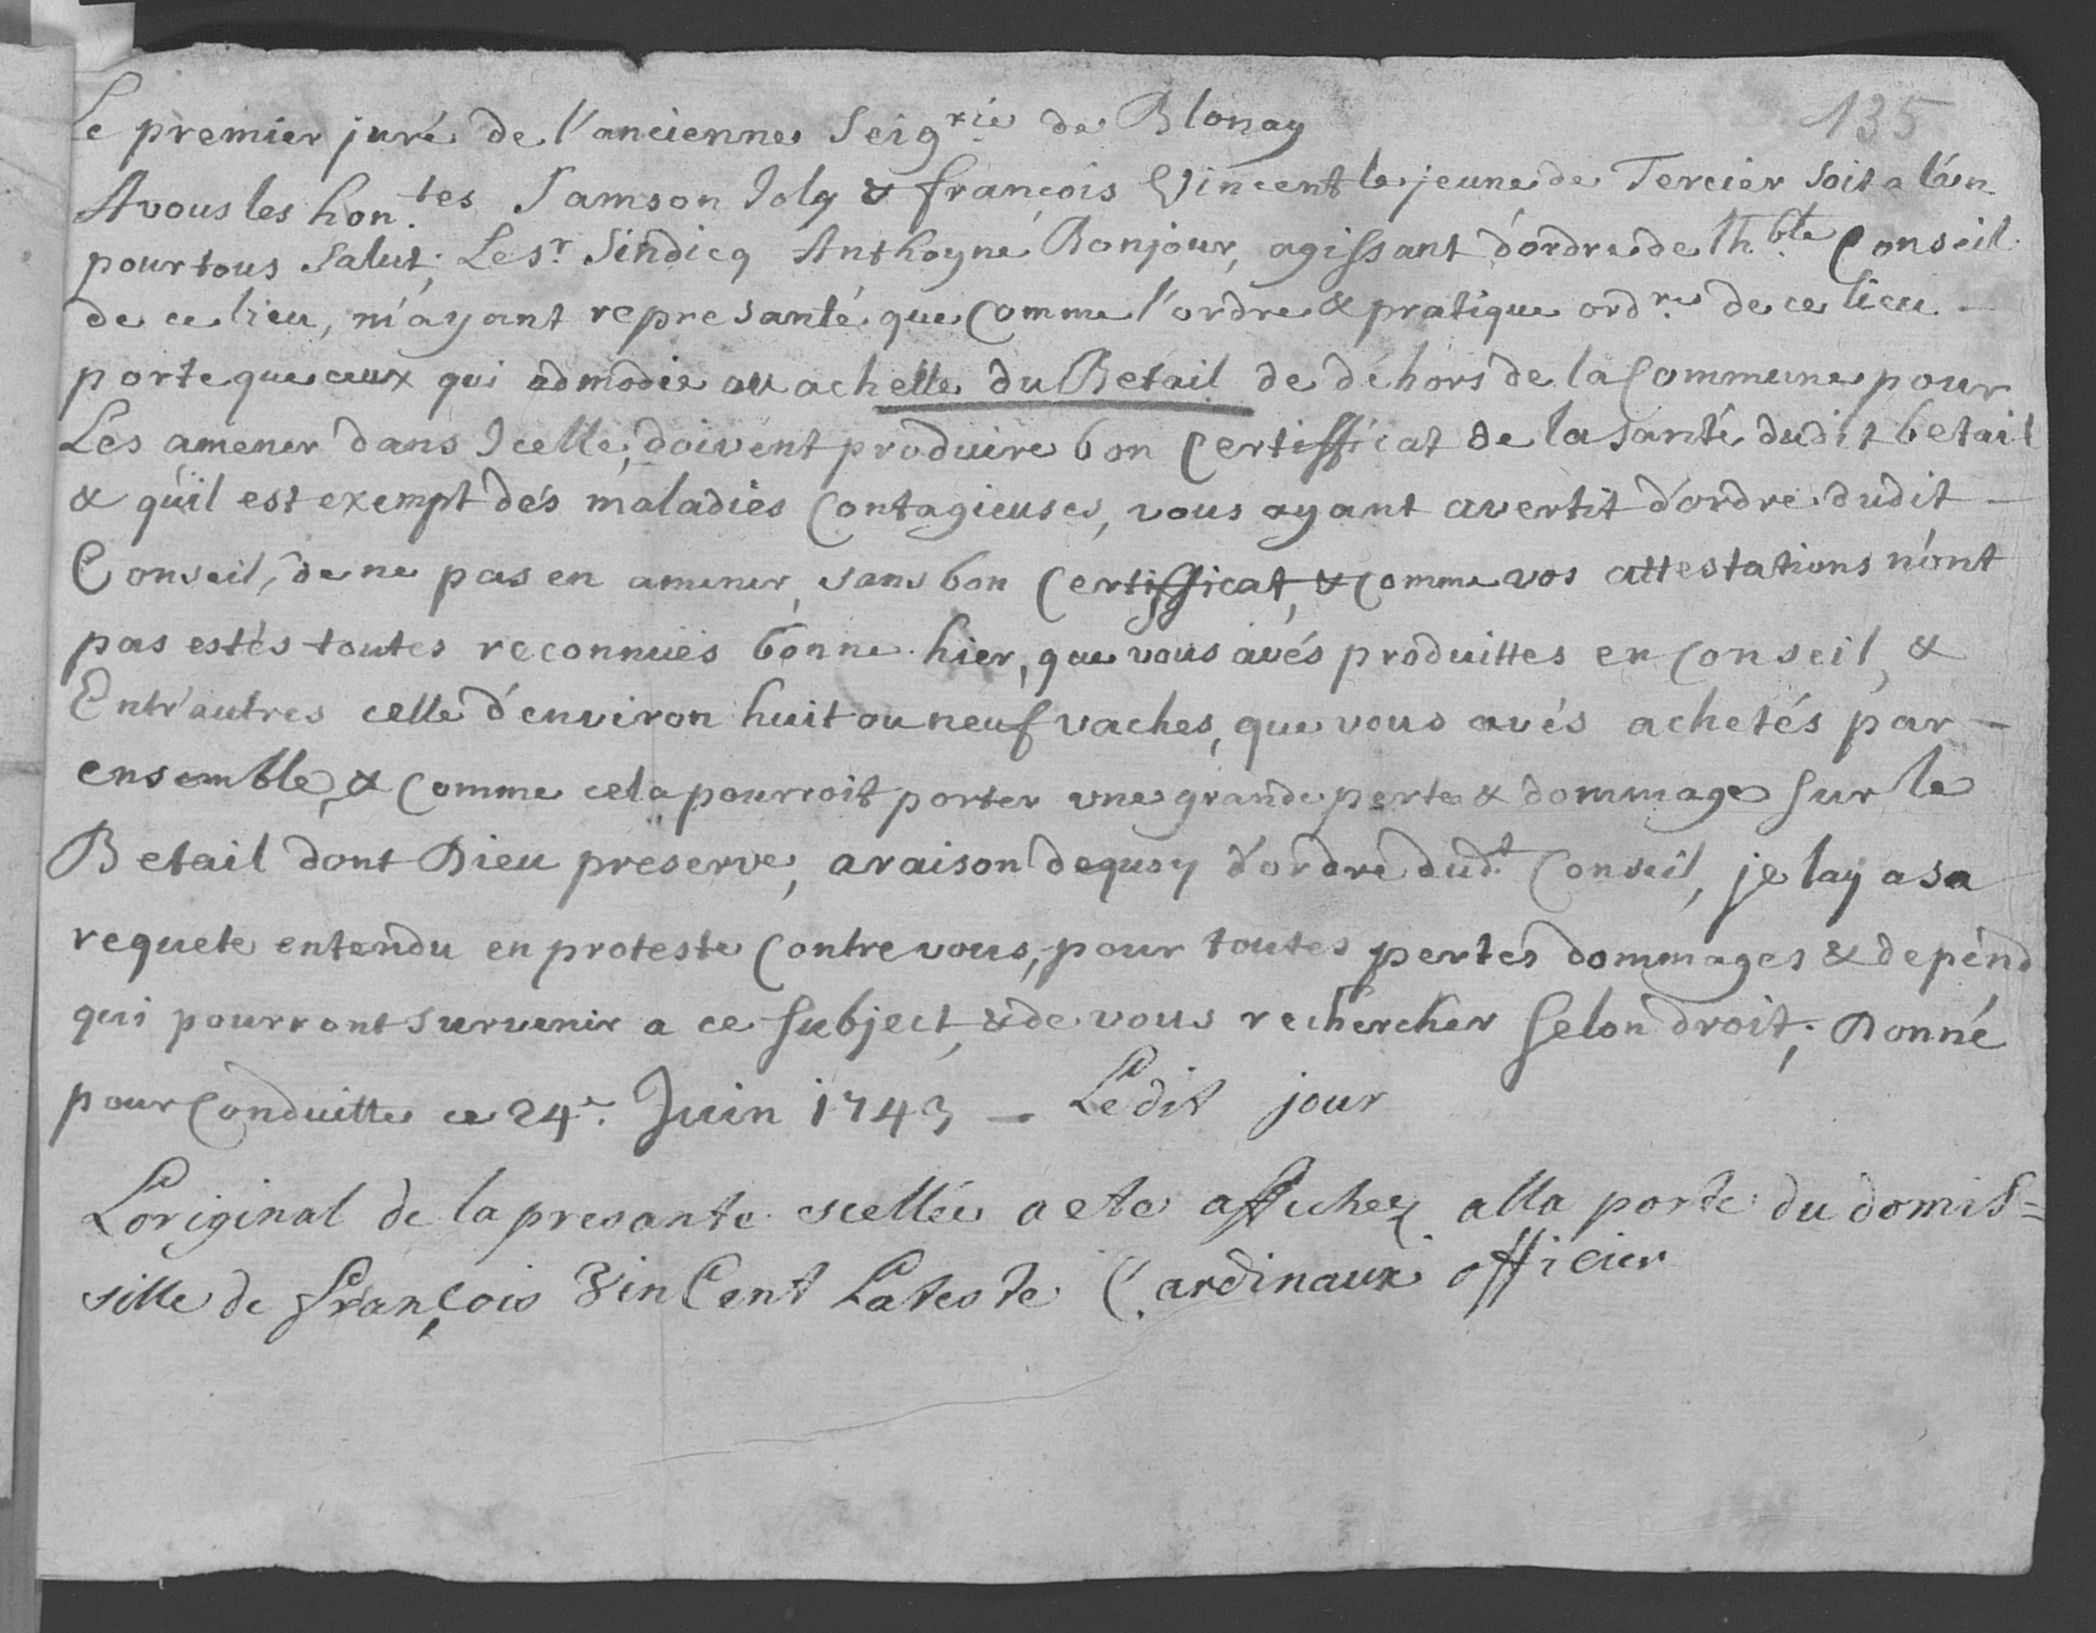 135
Le premier juré de l'ancienne Seig.rie de Blonay
A vous les hon.tes Samson Joly & françois Vincent le jeune de Tercier soit a lún
pour tous Salut; Le Sr. Sindicq Anthoyne Bonjour, agissant d'ordre de lh.ble Conseil
de ce lieu, m'ayant represanté que Comme l'ordre & pratique ord.re de ce lieu –
porte que ceux qui admodie ou achette du Betail de déhors de la Commune pour
Les amener dans Jcelle, doivent produire bon Certifficat de la santé dudit betail
& qu'il est exempt des maladies Contagieuses, vous ayant avertit d'ordre dudit –
Conseil, de ne pas en amener, sans bon Certifficat, & Comme vos attestations n'ont
pas estés toutes reconnües bonne hier, que vous avés produittes en Conseil, &
Entr'autres celle d'environ huit ou neuf vaches, que vous avés achetés par –
ensemble, & Comme cela pourroit porter une grande perte & dommage sur le
Betail dont Dieu preserve, a raison dequoy d'ordre dud.t Conseil, je lay a sa
requete entendu en proteste Contre vous, pour toutes pertes dommages & depend
qui pourront survenir a ce subject, & de vous rechercher selon droit; Donné
pour Conduitte ce 24.e Juin 1743 – Ledit jour
Loriginal de la presante scellée a ete affichez alla porte du domis=
sille de françois VinCent Lateste Cardinaux officier